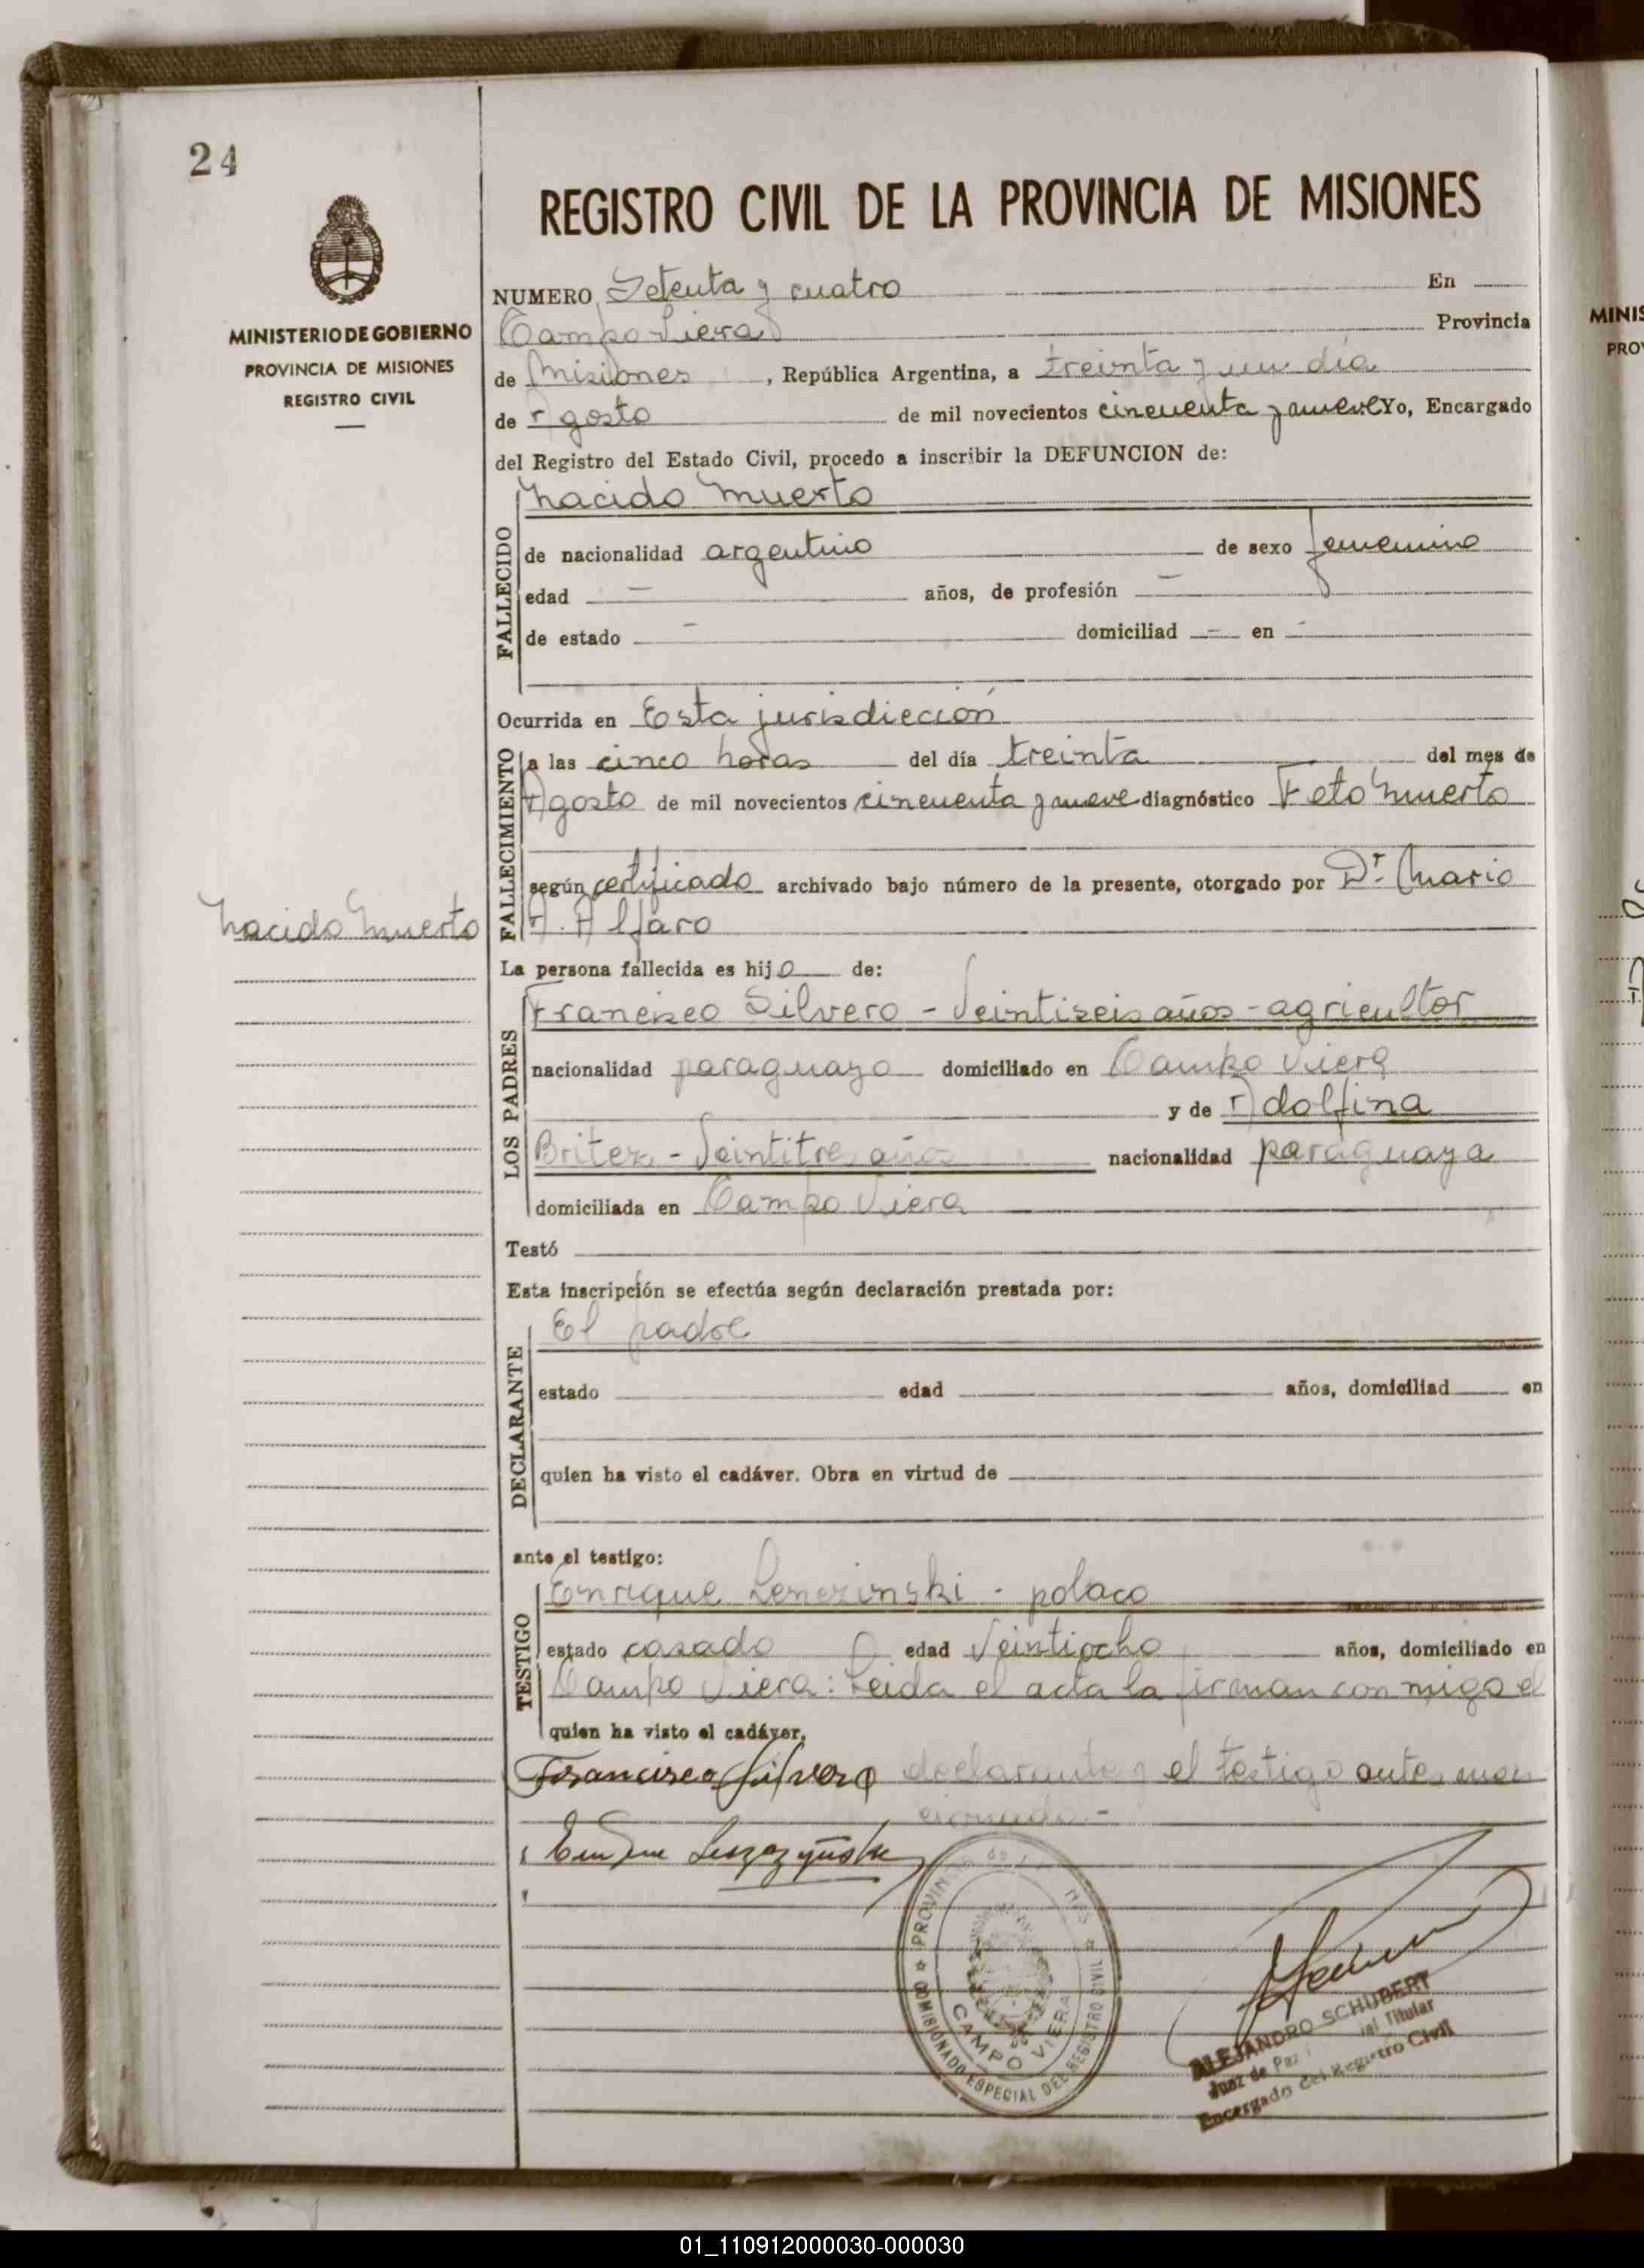 24
MINISTERIO DE GOBIERNO
PROVINCIA DE MISIONES
REGISTRO CIVIL
REGISTRO CIVIL DE LA PROVINCIA DE MISIONES
NUMERO Setenta y cuatro En
Campo Viera Provincia
de Misiones, República Argentina, a treinta y un día
de Agosto de mil novecientos cincuenta y nueve Yo, Encargado
del Registro del Estado Civil, procedo a inscribir la DEFUNCION de:
FALLECIDO
Nacido Muerto
de nacionalidad argentino de sexo femenino
edad — años, de profesión —
de estado — domiciliad — en —
Ocurrida en Esta jurisdicción
FALLECIMIENTO
a las cinco horas del día treinta del mes de
Agosto de mil novecientos cincuenta y nueve diagnóstico Feto Muerto
según certificado archivado bajo número de la presente, otorgado por Dr. Mario
A. Alfaro
Nacido Muerto
La persona fallecida es hijo de:
LOS PADRES
Francisco Silvero - Veintiseis años - agricultor
nacionalidad paraguayo domiciliado en Campo Viera
y de Adolfina
Britez - Veintitres años nacionalidad paraguaya
domiciliada en Campo Viera
Testó
Esta inscripción se efectúa según declaración prestada por:
DECLARANTE
El padre
estado edad años, domiciliad en
quien ha visto el cadáver. Obra en virtud de
ante el testigo:
TESTIGO
Enrique Lenczinski - polaco
estado casado edad Veintiocho años, domiciliado en
Campo Viera: Leida el acta la firman con migo el
quien ha visto el cadáver,
Francisco Silvero declarante y el testigo antes men
cionado.-
PROVINCIA DE MISIONES
COMISIONADO ESPECIAL DEL REGISTRO CIVIL
CAMPO VIERA
ALEJANDRO SCHUBERT
Juez de Paz Titular
Encargado del Registro Civil
MINIS
PRO
01_110912000030-000030